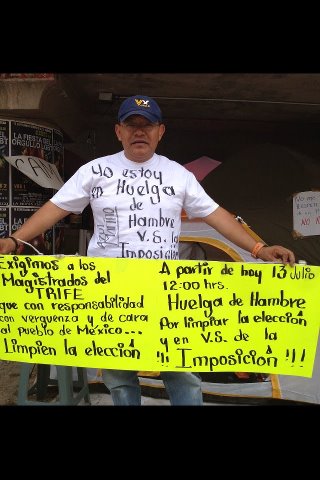 VX
Yo estoy
en
Huelga
de
Hambre
V.S. la
Imposición
Exigimos a los
Magistrados del
TRIFE
que con responsabilidad
con verguenza y de cara
al pueblo de México...
Limpien la elección
A partir de hoy 13 Julio
12:00 hrs.
Huelga de Hambre
Por limpiar la elección
y en V.S. de la
¡¡¡ Imposición !!!
LA FIESTA DEL
ORGULLO